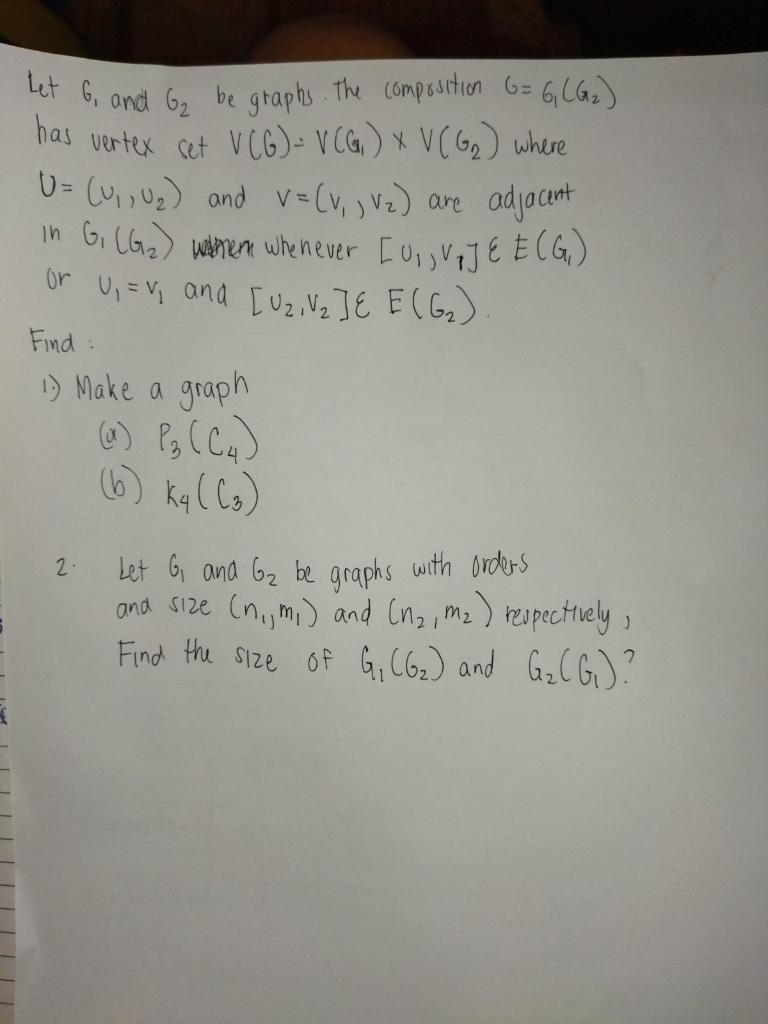 Let G₁ and G₂ be graphs. The composition G = G₁(G₂)
has vertex set V(G) = V(G₁) x V(G₂) where
U = (U₁, U₂) and v = (v₁, v₂) are adjacent
in G₁(G₂) whenever [U₁, v₁] ε E(G₁)
or U₁ = v₁ and [U₂, v₂] ε E(G₂).
Find :
1.) Make a graph
(a) P₃(C₄)
(b) K₄(C₃)
2. Let G₁ and G₂ be graphs with orders
and size (n₁, m₁) and (n₂, m₂) respectively,
Find the size of G₁(G₂) and G₂(G₁)?